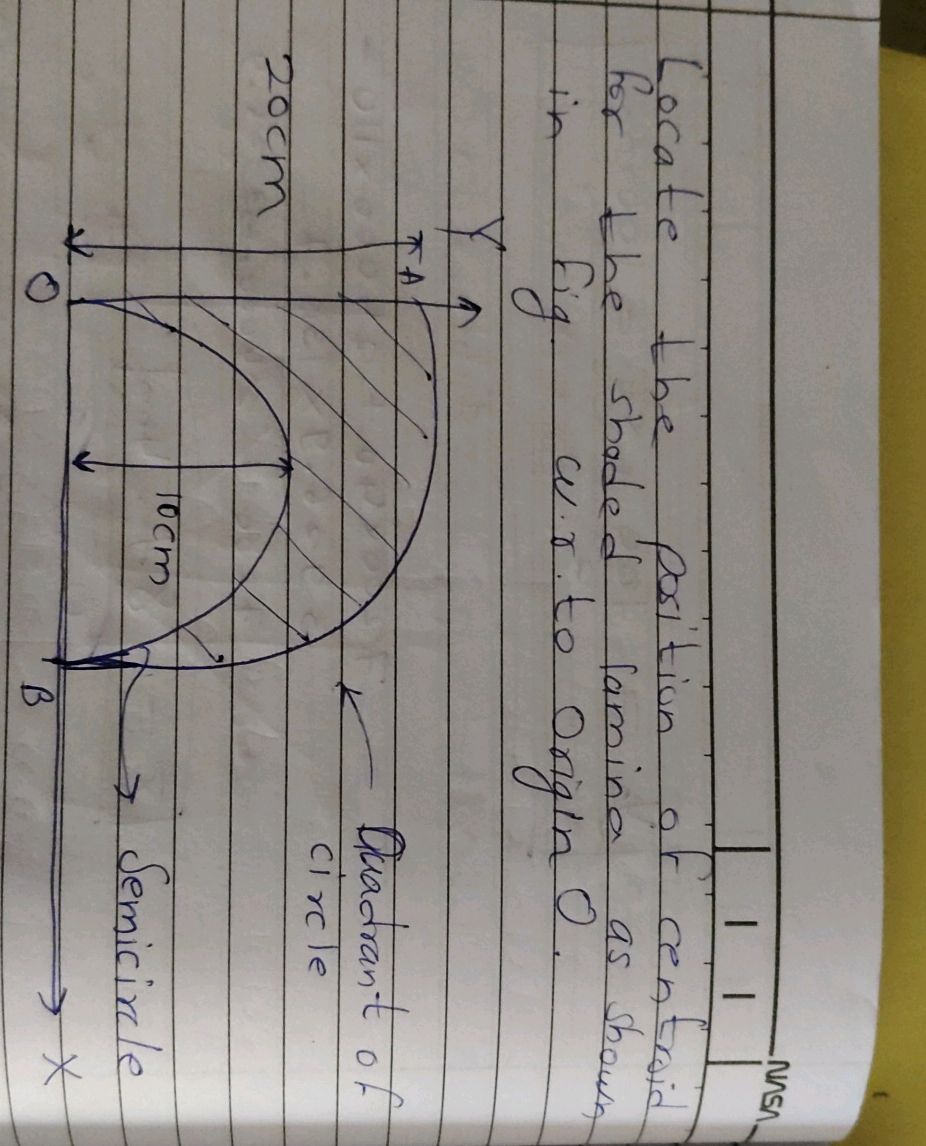 NASA
Locate the position of centroid
for the shaded lamina as shown
in fig. w.r.to Origin O.
Y
A
20cm
Quadrant of
circle
10cm
Semicircle
O
B
X